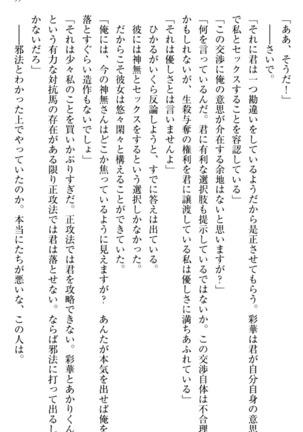 「ああ、そうだ！」
「それに君は一つ勘違いをしているようだから是正させてもらう。彩華は君が自分自身の意思
で私とセックスすることを容認している」
「この交渉に俺の意思が介在する余地はないと思いますが？」
「何を言っているんだ。君に有利な選択肢も提示しているではないか。この交渉自体は不合理
かもしれないが、生殺与奪の権利を君に譲渡している私は優しさに満ちあふれている」
「それは優しさとは言いませんよ」
ひかるがいくら反論しようと、すでに答えは出ている。
彼には神無とセックスをするという選択しかなかった。
だからこそ彼女は悠々と構えることができていた。
「俺には、今の神無さんはどこか焦っているように見えますが？　あんたが本気を出せば俺を
落とすぐらい造作もないでしょ」
「それは少々私のことを買いかぶりすぎだ。正攻法では君を攻略できない。彩華とあかりくん
という有力な対抗馬の存在がある限り正攻法では君は落とせない。ならば邪法に打って出るし
かないだろ」
――邪法とわかった上でやっていたのか。本当にたちが悪いな、この人は。